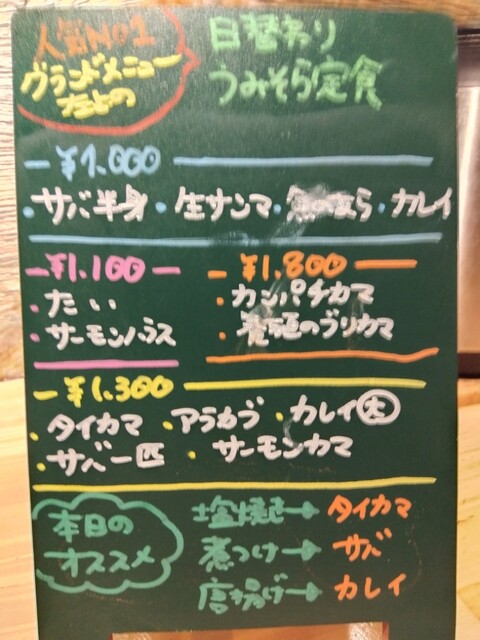 人気No1
グランドメニュー
日替わり
うみそら定食
¥1.000
・サバ半身・生サンマ・カレイ
¥1.100
・たい
・サーモンハラス
¥1.800
・カンパチカマ
・のブリカマ
¥1.300
・タイカマ・アラカブ・カレイ大
・サバ一匹・サーモンカマ
本日の
オススメ
塩焼き→タイカマ
煮つけ→サバ
唐揚げ→カレイ